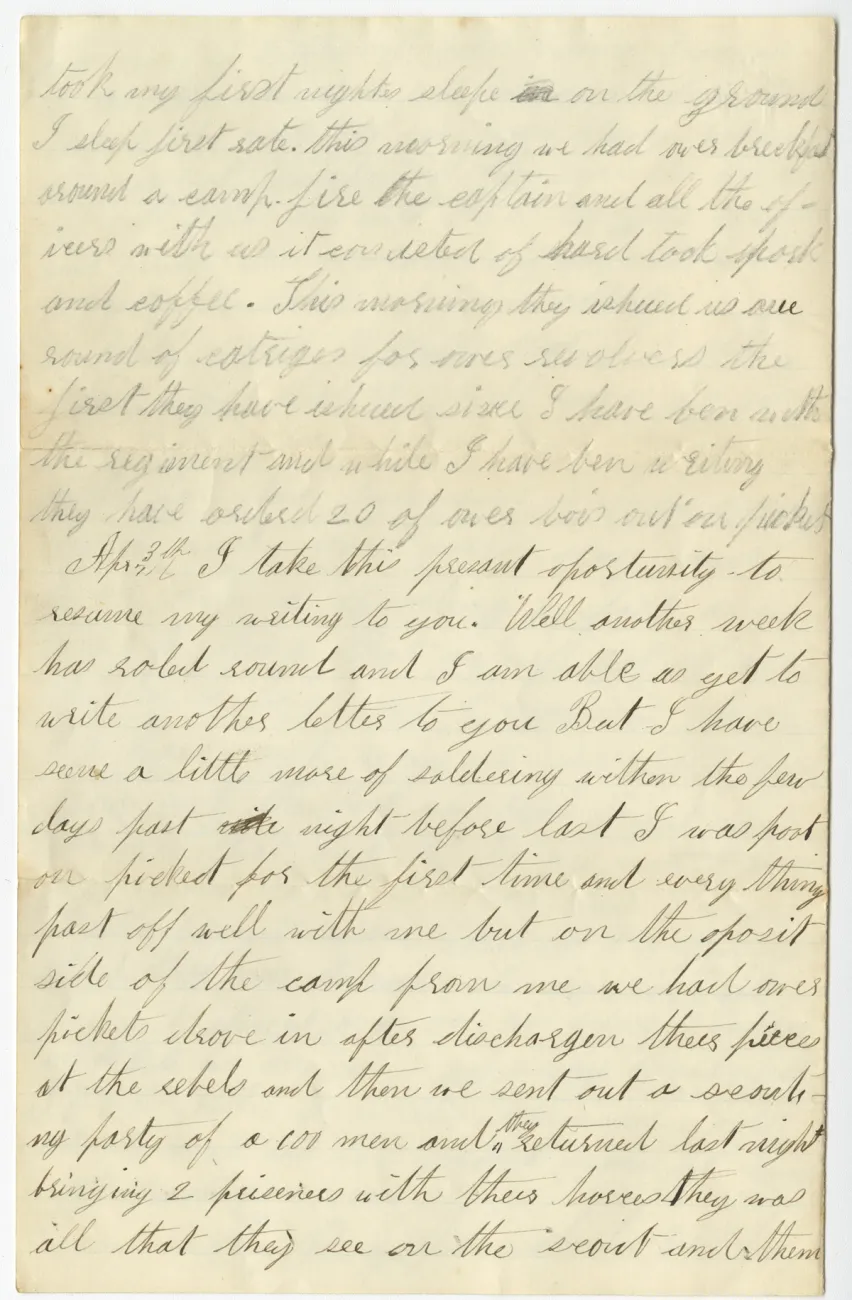 took my first nights sleepe in on the ground
I sleep first rate. this morning we had ower breckfast
around a camp. fire the captain and all the of-
icers with us it concisted of hard took pork
and coffee. This morning they ishued us one
round of catriges for ower revolvers the
first they have ishued since I have ben with
the regiment and while I have ben writing
they have orderd 20 of ower bois out on picket
Apr. 3th I take this presant oportunity to
resume my writing to you. Well another week
has rold round and I am able as yet to
write another letter to you But I have
seene a little more of soldering withen the few
days past night before last I was poot
on picked for the first time and every thing
past off well with me but on the oposit
side of the camp from me we had ower
pickets drove in after dischargen theer pieces
at the rebels and then we sent out a scouti-
ng party of a 100 men and they returned last night
bringing 2 priseners with theer horces they was
all that they see on the scout and them